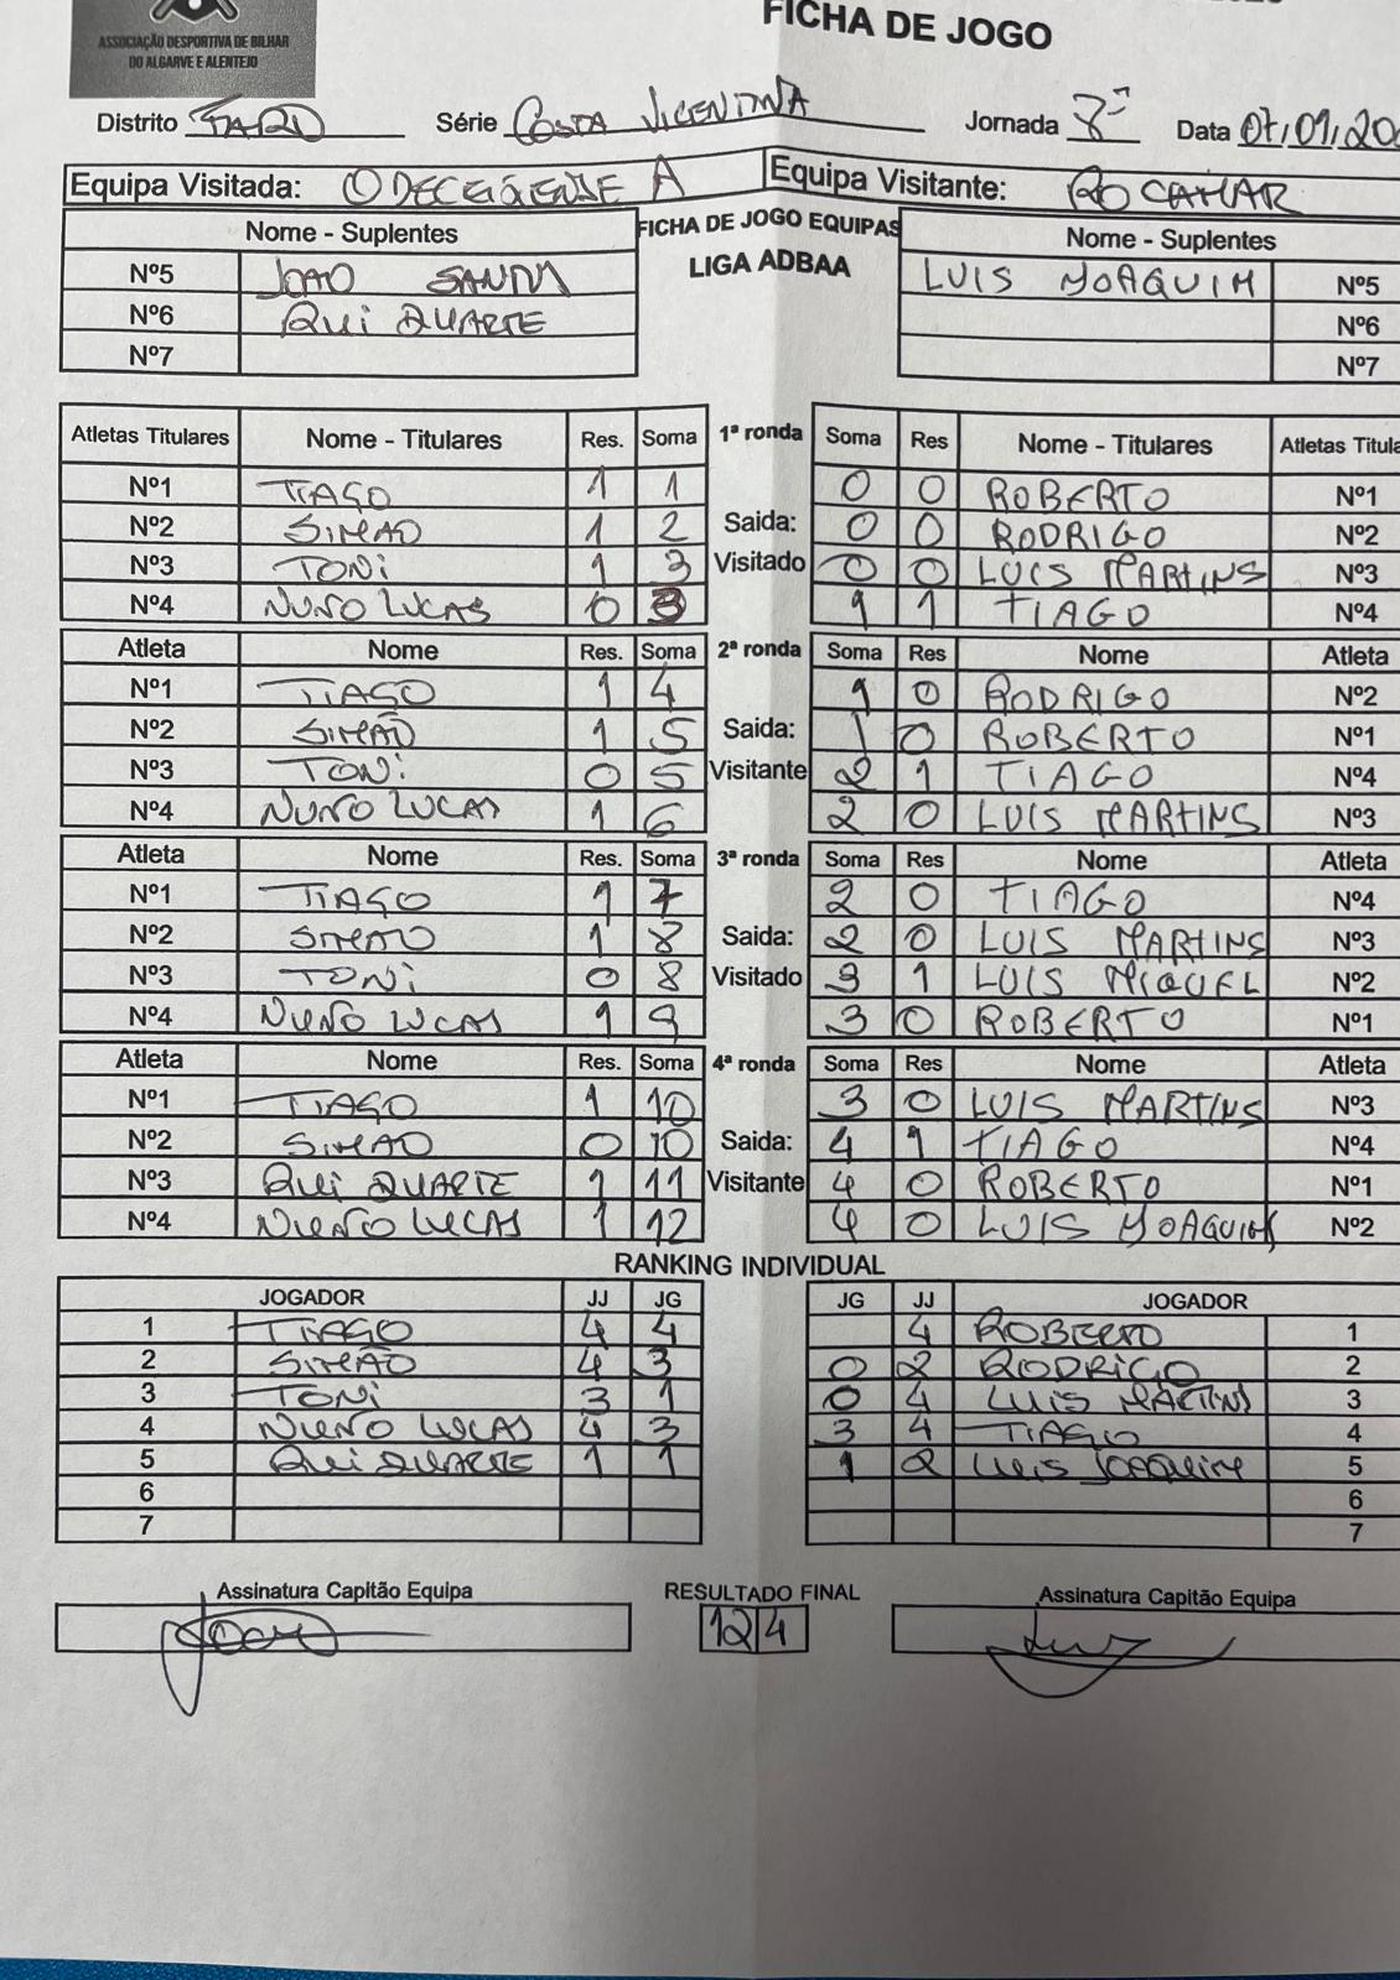 FICHA DE JOGO
ASSOCIAÇÃO DESPORTIVA DE BILHAR
DO ALGARVE E ALENTEJO
Distrito FARO Série COSTA VICENTINA Jornada Data 07/01/20
Equipa Visitada: ODECEIXENSE A Equipa Visitante: ROCAMAR
Nome - Suplentes FICHA DE JOGO EQUIPAS Nome - Suplentes
LIGA ADBAA
Nº5 JOAO LUIS JOAQUIM Nº5
Nº6 RUI DUARTE Nº6
Nº7 Nº7
Atletas Titulares Nome - Titulares Res. Soma 1ª ronda Soma Res Nome - Titulares Atletas Titula
Nº1 TIAGO 1 1 0 0 ROBERTO Nº1
Nº2 SIMAO 1 2 Saida: 0 0 RODRIGO Nº2
Nº3 TONI 1 3 Visitado 0 0 LUIS MARTINS Nº3
Nº4 NUNO LUCAS 0 3 1 1 TIAGO Nº4
Atleta Nome Res. Soma 2ª ronda Soma Res Nome Atleta
Nº1 TIAGO 1 4 1 0 RODRIGO Nº2
Nº2 SIMÃO 1 5 Saida: 1 0 ROBERTO Nº1
Nº3 TONI 0 5 Visitante 2 1 TIAGO Nº4
Nº4 NUNO LUCAS 1 6 2 0 LUIS MARTINS Nº3
Atleta Nome Res. Soma 3ª ronda Soma Res Nome Atleta
Nº1 TIAGO 1 7 2 0 TIAGO Nº4
Nº2 SIMAO 1 8 Saida: 2 0 LUIS MARTINS Nº3
Nº3 TONI 0 8 Visitado 3 1 LUIS MIGUEL Nº2
Nº4 NUNO LUCAS 1 9 3 0 ROBERTO Nº1
Atleta Nome Res. Soma 4ª ronda Soma Res Nome Atleta
Nº1 TIAGO 1 10 3 0 LUIS MARTINS Nº3
Nº2 SIMAO 0 10 Saida: 4 1 TIAGO Nº4
Nº3 RUI DUARTE 1 11 Visitante 4 0 ROBERTO Nº1
Nº4 NUNO LUCAS 1 12 4 0 LUIS JOAQUIM Nº2
RANKING INDIVIDUAL
JOGADOR JJ JG JG JJ JOGADOR
1 TIAGO 4 4 4 ROBERTO 1
2 SIMÃO 4 3 0 2 RODRIGO 2
3 TONI 3 1 0 4 LUIS MARTINS 3
4 NUNO LUCAS 4 3 3 4 TIAGO 4
5 RUI DUARTE 1 1 1 2 LUIS JOAQUIM 5
6 6
7 7
Assinatura Capitão Equipa RESULTADO FINAL Assinatura Capitão Equipa
12 4